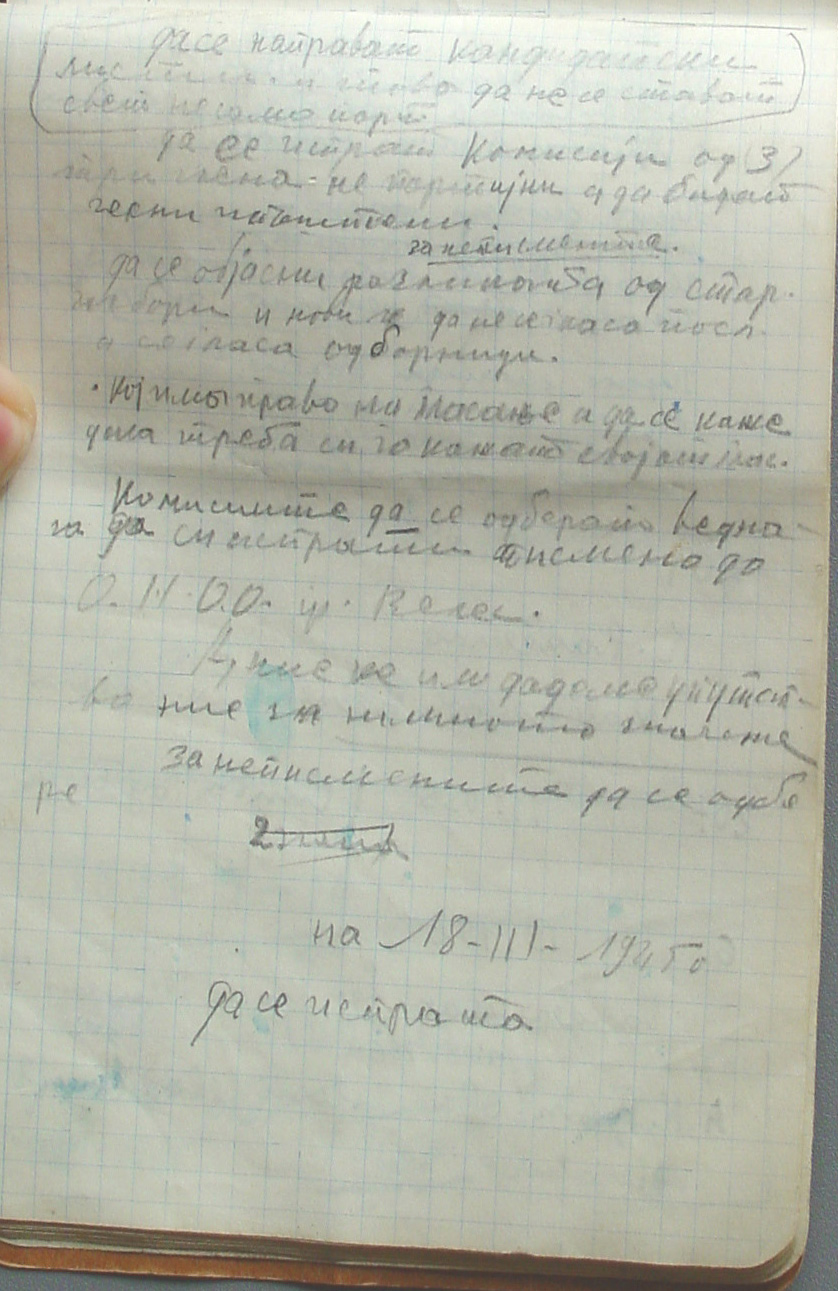 да се направат кандидатски
листи и това да не се стават
свет не само парт
да се истрат Комисији од (3)
три члена не партијни а да бидат
чесни
за неписмените.
да се објасни разликата од стар.
избори и нови да не се гласа посл.
а се гласа одборници.
Кој има право на гласање и да се каже
дека треба си го кажат својот глас.
Комисиите да се одберат ведна-
га да си истрати писмено до
О.Н.О.О. гр. Велес.
А, ние ке им дадеме упутст-
во ние за нивното значење
за неписмените да се одбе
ре
на 18-III-1945 г
да се испрати